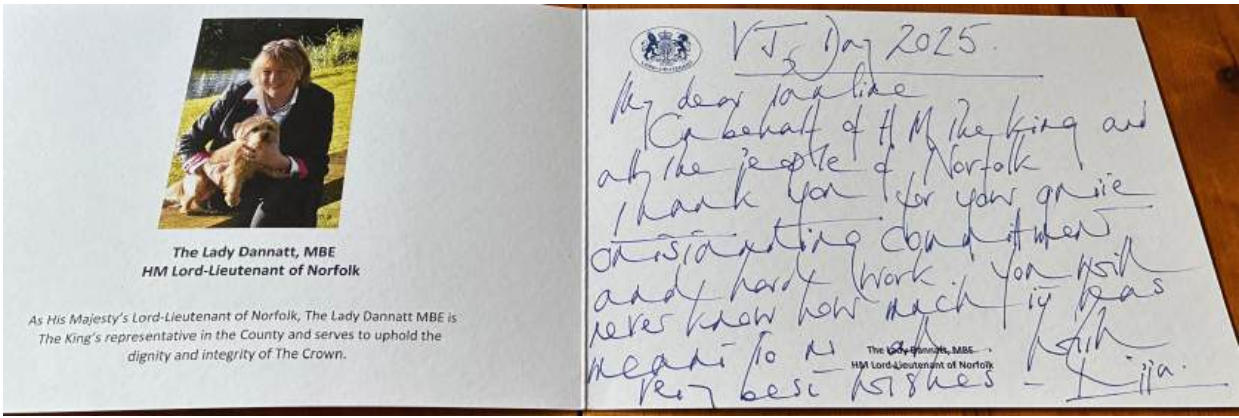 The Lady Dannatt, MBE
HM Lord-Lieutenant of Norfolk
As His Majesty's Lord-Lieutenant of Norfolk, The Lady Dannatt MBE is
The King's representative in the County and serves to uphold the
dignity and integrity of The Crown.
LORD-LIEUTENANT
VJ Day 2025.
My dear Pauline
On behalf of HM The King and
all the people of Norfolk
Thank you for your quite
outstanding commitment
and hard work. You will
never know how much it has
meant to us all. With
The Lady Dannatt, MBE
HM Lord-Lieutenant of Norfolk
very best wishes -